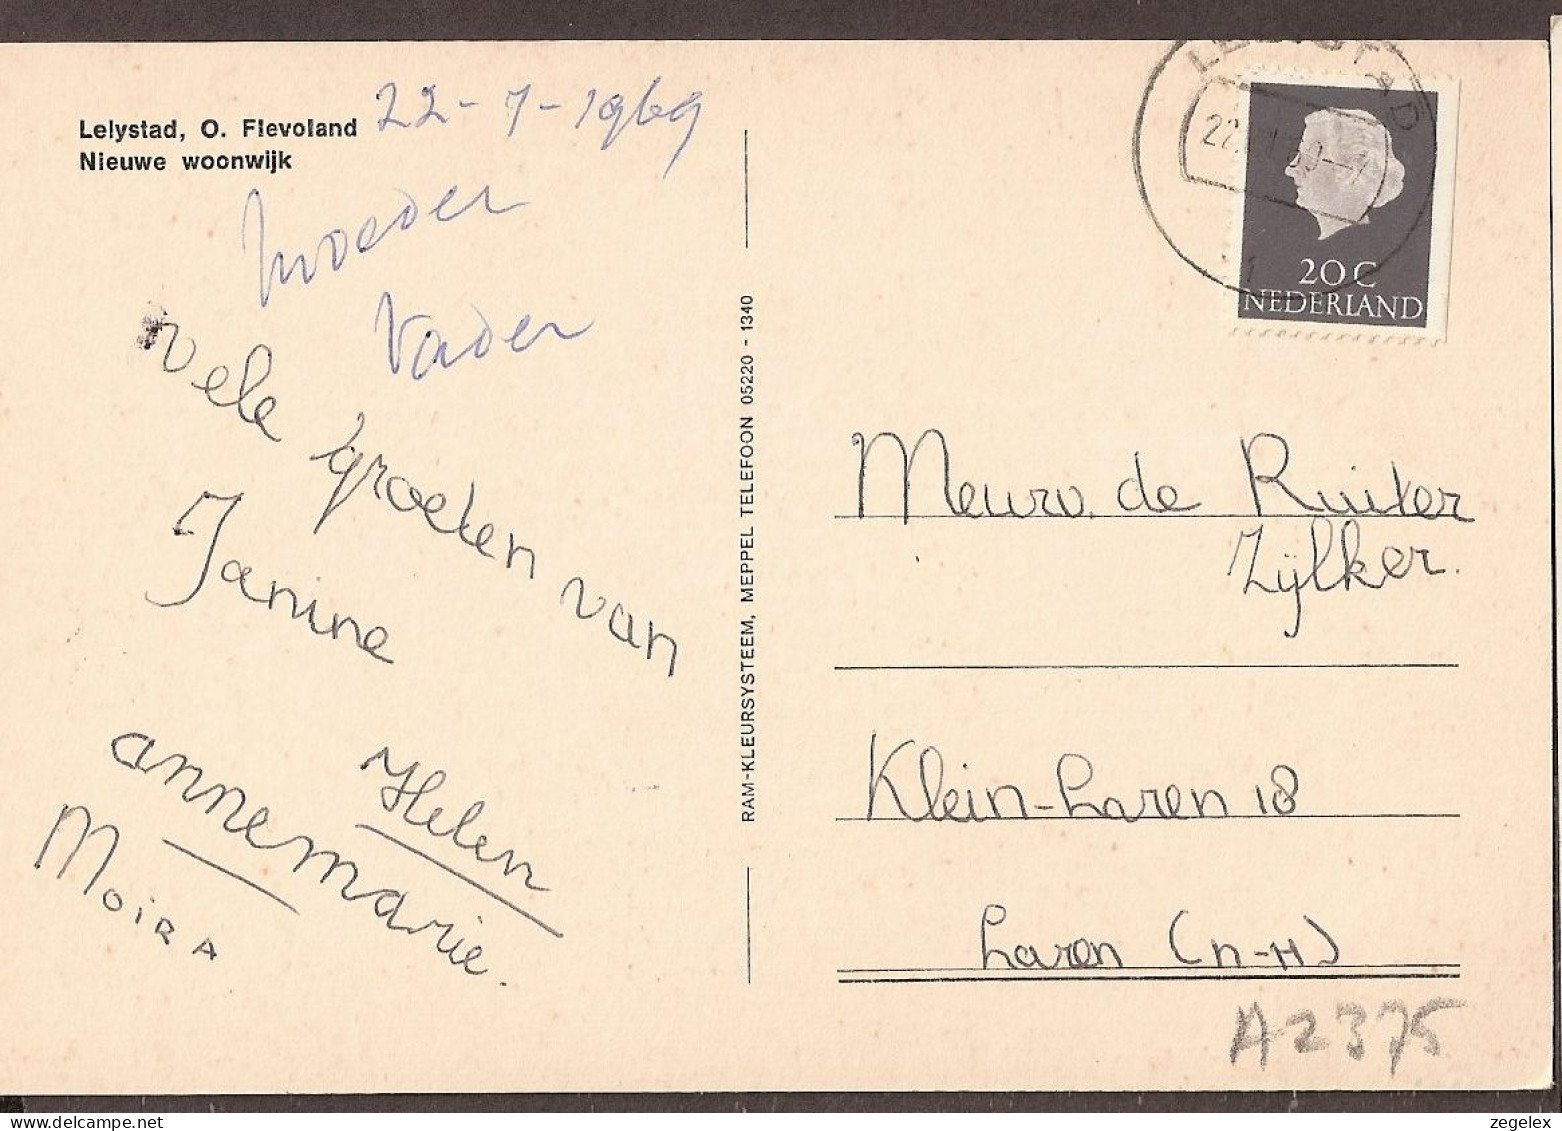 Lelystad, O. Flevoland
Nieuwe woonwijk
22-7-1969
Moeder
Vader
vele groeten van
Janine
Helen
annemarie.
MoiRA
RAM-KLEURSYSTEEM, MEPPEL TELEFOON 05220 - 1340
LELYSTAD
1
20 C
NEDERLAND
Meurv. de Ruiter
Zijlker.
Klein-Laren 18
Laren (n-H)
A2375
zegelex